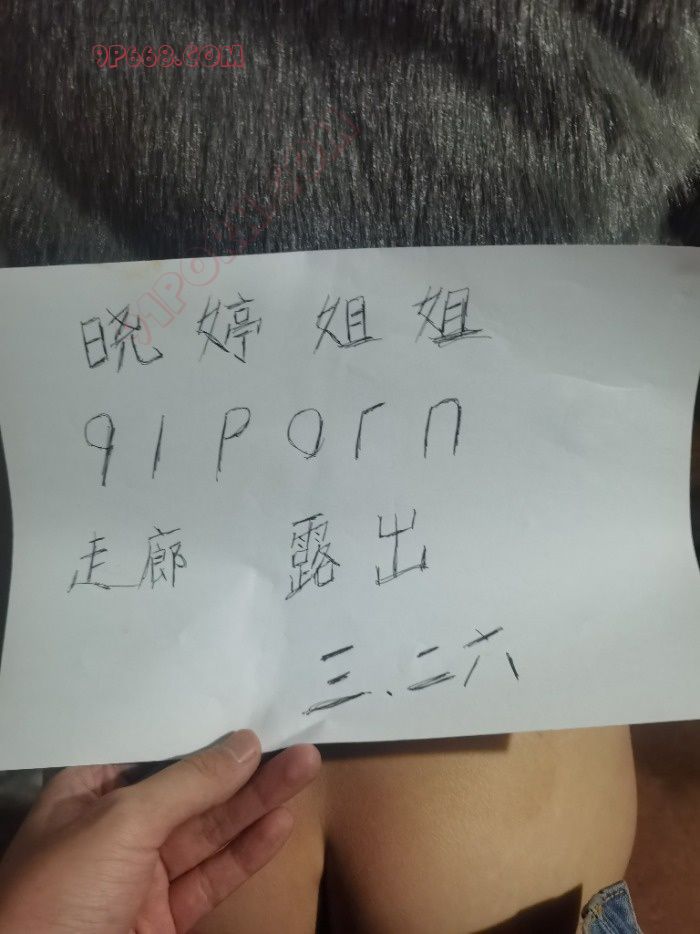 9P668.COM
91PORN.COM
晓婷姐姐
91porn
走廊 露出
三.二六